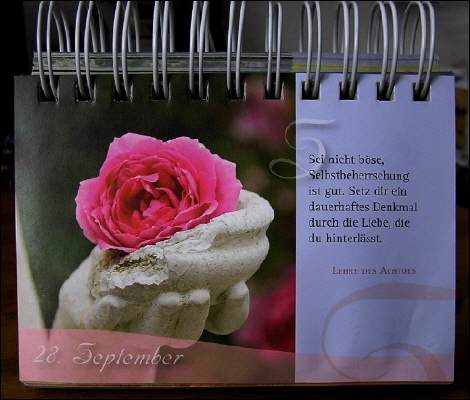 Sei nicht böse,
Selbstbeherrschung
ist gut. Setz dir ein
dauerhaftes Denkmal
durch die Liebe, die
du hinterlässt.
Lehre des Achtoes
28. September